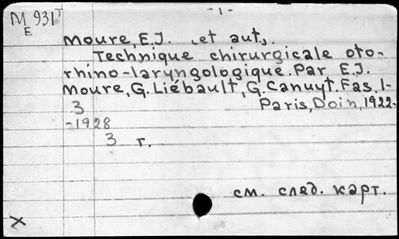 - 1 -
M 931 T
E
Moure, E.J. et aut.
Technique chirurgicale oto-
rhino-laryngologique. Par E.J.
Moure, G. Liébault, G. Canuyt. Fas. 1-
3 Paris, Doin, 1922-
-1928
3 г.
см. след. карт.
X